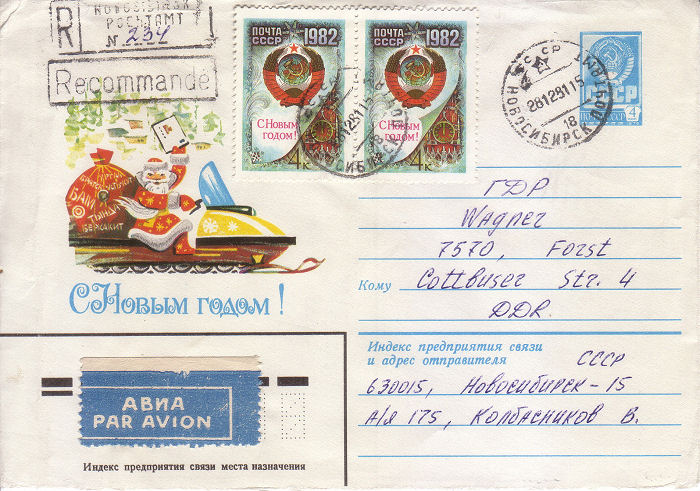 R
НОВОСИБИРСК
ПОЧТАМТ
№ 234
Recommandé
ПОЧТА
СССР
1982
С Новым
годом!
4к
ПОЧТА
СССР
1982
С Новым
годом!
4к
СССР
НОВОСИБИРСК
ПОЧТАМТ
28128115
18
БАМ
ТЫНДА
БЕРКАКИТ
С Новым годом!
ГДР
Wagner
7570, Forst
Кому Cottbuser Str. 4
DDR.
Индекс предприятия связи
и адрес отправителя СССР
630015, Новосибирск-15
А/я 175, Колбасников В.
АВИА
PAR AVION
Индекс предприятия связи места назначения